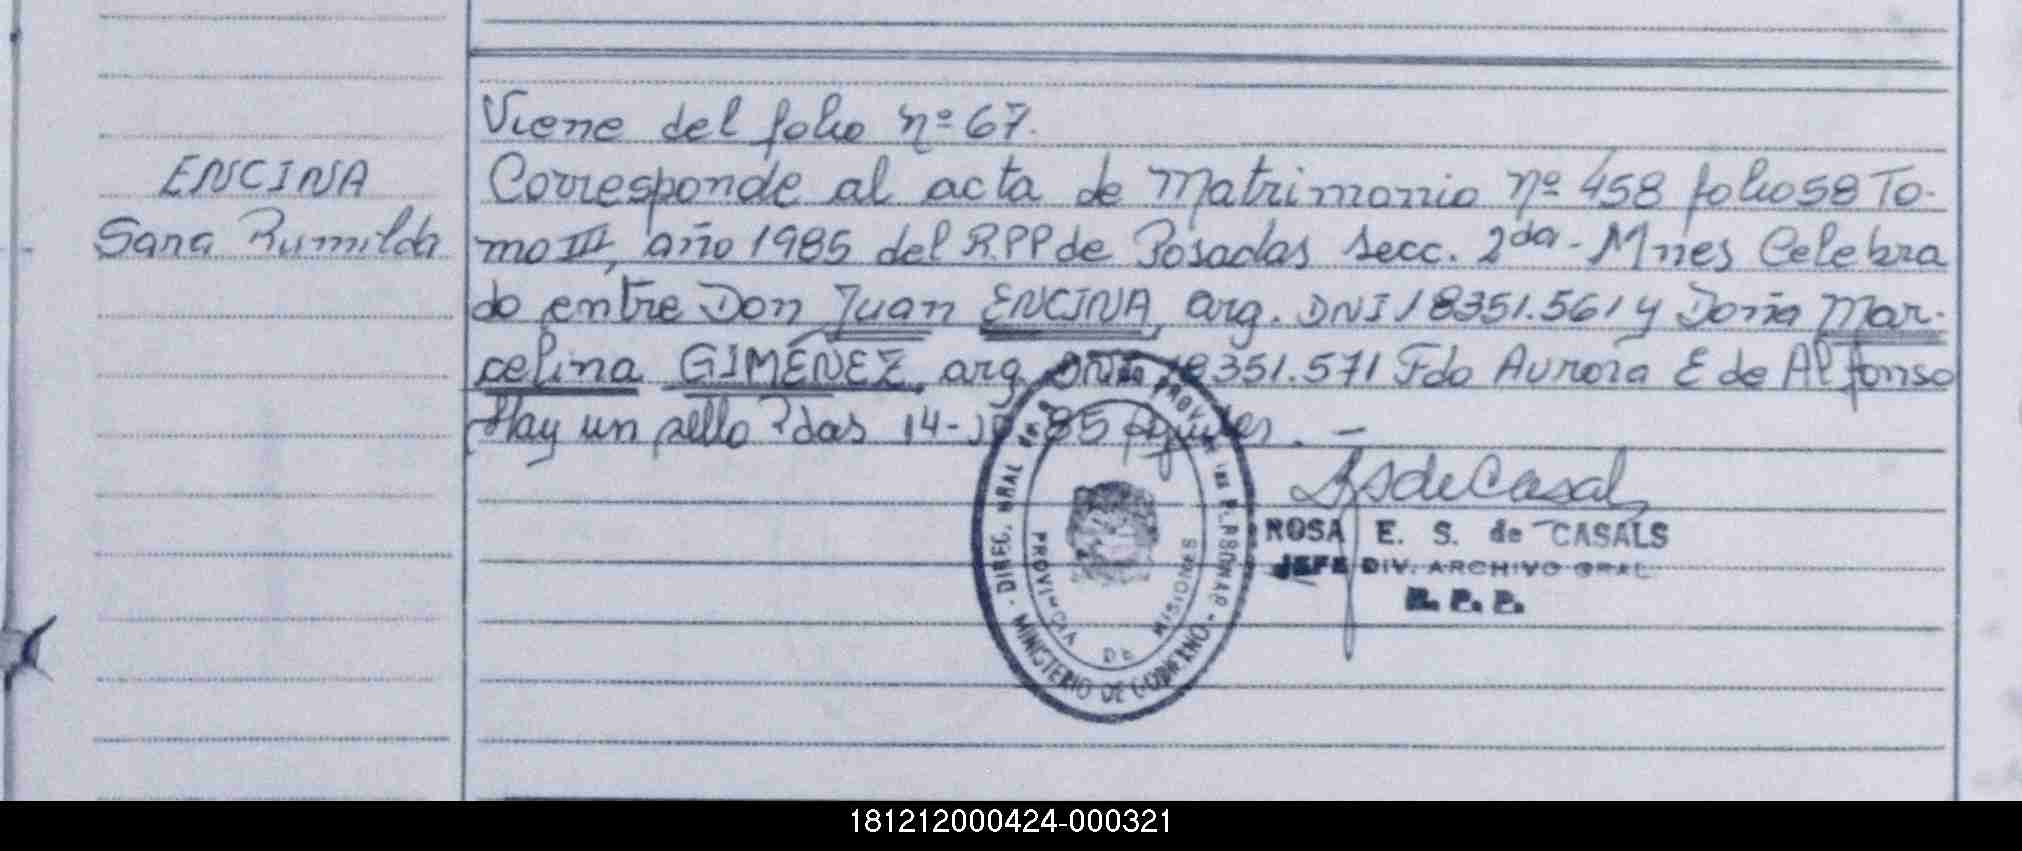 Viene del folio nº 67.
ENCINA
Sara Rumilda
Corresponde al acta de Matrimonio nº 458 folio 58 To-
mo III, año 1985 del R.P.P de Posadas Secc. 2da - Mnes Celebra
do entre Don Juan ENCINA, arg. DNI 18351.561 y Doña Mar-
celina GIMÉNEZ, arg DNI 18351.571 Fdo Aurora E de Alfonso
Hay un sello Pdas 14-10-85
ROSA E. S. de CASALS
JEFE DIV. ARCHIVO GRAL
R. P. P.
DIREC. GRAL
MINISTERIO DE GOBIERNO
PROVINCIA DE MISIONES
181212000424-000321